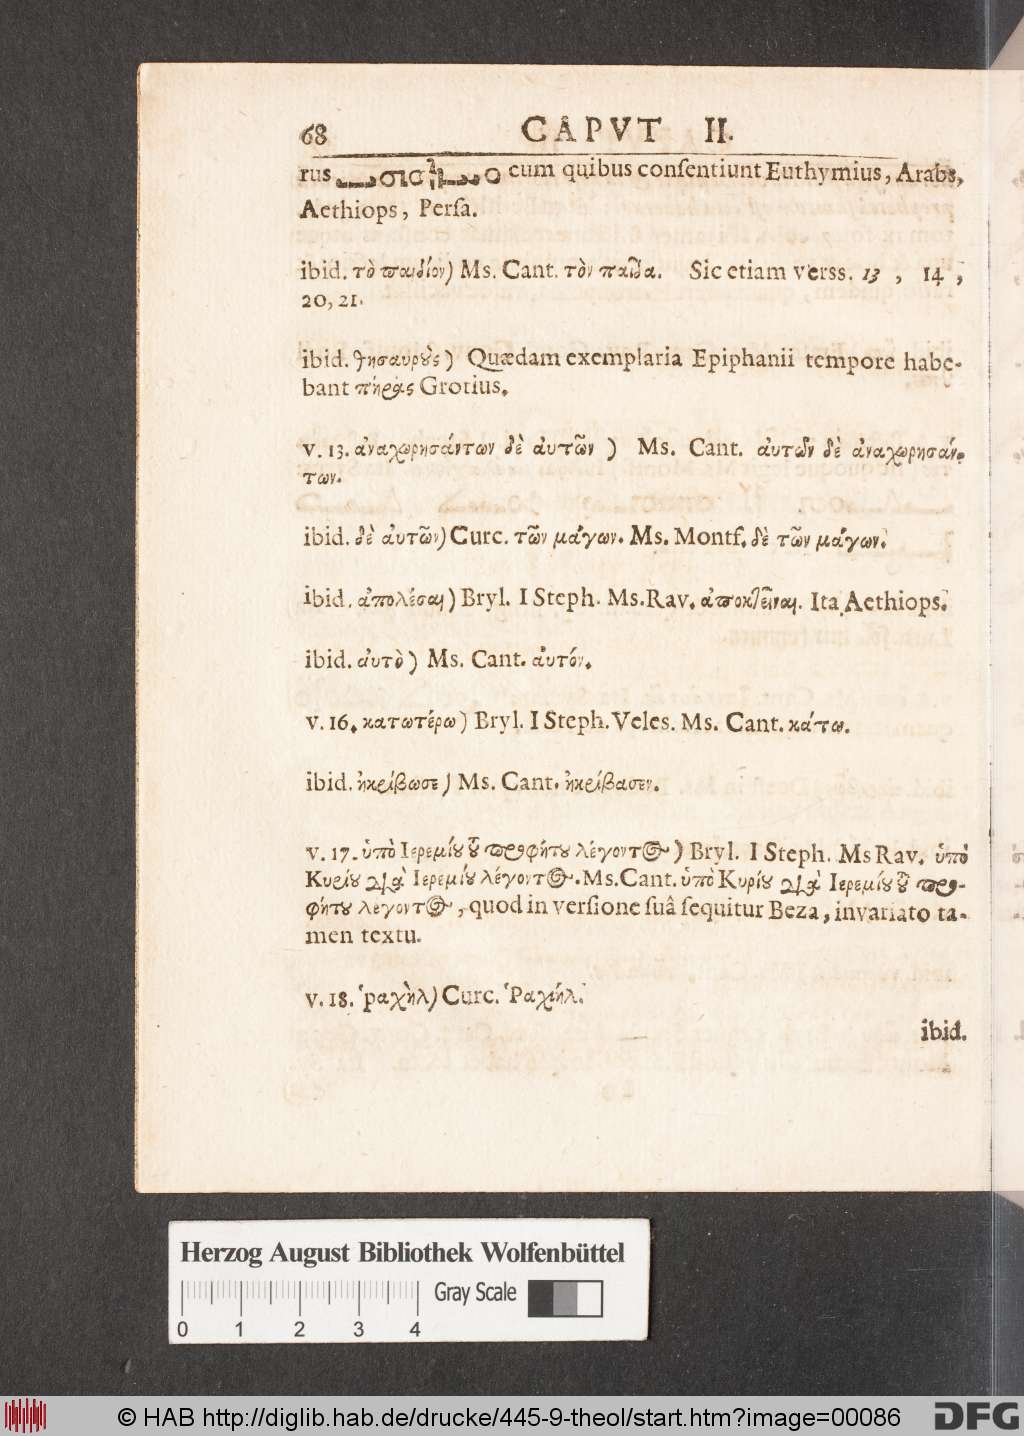 68 CAPVT II.
rus cum quibus consentiunt Euthymius, Arabs,
Aethiops, Persa.
ibid. τὸ παιδίον) Ms. Cant. τὸν παῖδα. Sic etiam verss. 13, 14,
20, 21.
ibid. θησαυροὺς) Quædam exemplaria Epiphanii tempore habe-
bant πήρας Grotius.
v. 13. ἀναχωρησάντων δὲ ἀυτῶν) Ms. Cant. ἀυτῶν δὲ ἀναχωρησάν-
των.
ibid. δὲ ἀυτῶν) Curc. τῶν μάγων. Ms. Montf. δὲ τῶν μάγων.
ibid. ἀπολέσαι) Bryl. I Steph. Ms. Rav. ἀποκτεῖναι. Ita Aethiops.
ibid. ἀυτὸ) Ms. Cant. ἀυτόν.
v. 16. κατωτέρω) Bryl. I Steph. Veles. Ms. Cant. κάτω.
ibid. ἠκρίβωσε) Ms. Cant. ἠκρίβασεν.
v. 17. ὑπὸ Ιερεμίου τοῦ προφήτου λέγοντος) Bryl. I Steph. Ms Rav. ὑπὸ
Κυρίου διὰ Ιερεμίου λέγοντος. Ms. Cant. ὑπὸ Κυρίου διὰ Ιερεμίου τοῦ προ-
φήτου λέγοντος, quod in versione suâ sequitur Beza, invariato ta-
men textu.
v. 18. ῥαχὴλ) Curc. Ῥαχήλ.
ibid.
Herzog August Bibliothek Wolfenbüttel
Gray Scale
0 1 2 3 4
© HAB http://diglib.hab.de/drucke/445-9-theol/start.htm?image=00086
DFG